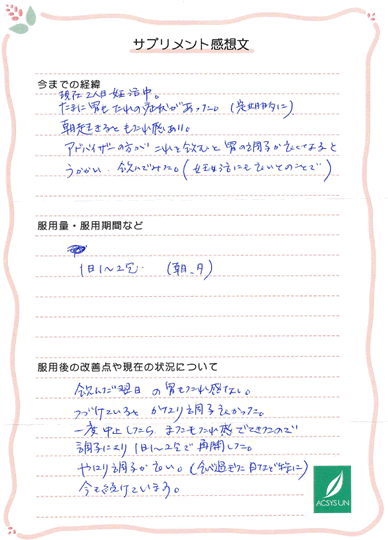 サプリメント感想文
今までの経緯
現在2人目妊活中。
たまに胃もたれの症状があった。(定期的に)
朝起きるともたれ感あり。
アドバイザーの方がこれを飲むと胃の調子が良くなると
うかがい、飲んでみた。(妊活にも良いとのことで)
服用量・服用期間など
1日1～2包 (朝、夕)
服用後の改善点や現在の状況について
飲んだ翌日の胃もたれ感なし。
つづけているとかなり調子よかった。
一度中止したら、またもたれ感でてきたので
調子により1日1～2包で再開した。
やはり調子が良い。(食べ過ぎた日など特に)
今も続けています。
ACSYSUN